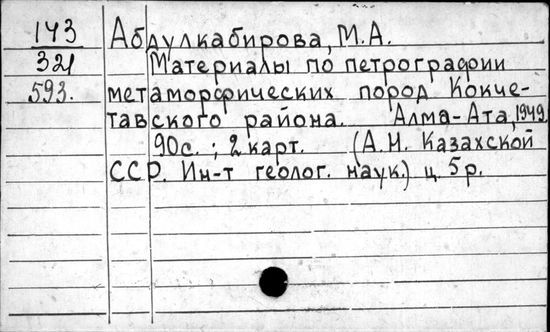 143
Абдулкабирова, М.А.
321
Материалы по петрографии
593.
метаморфических пород Кокче-
тавского района. Алма-Ата, 1949.
90с.; 2 карт. (А.Н. Казахской
ССР. Ин-т геолог. наук.) ц. 5р.